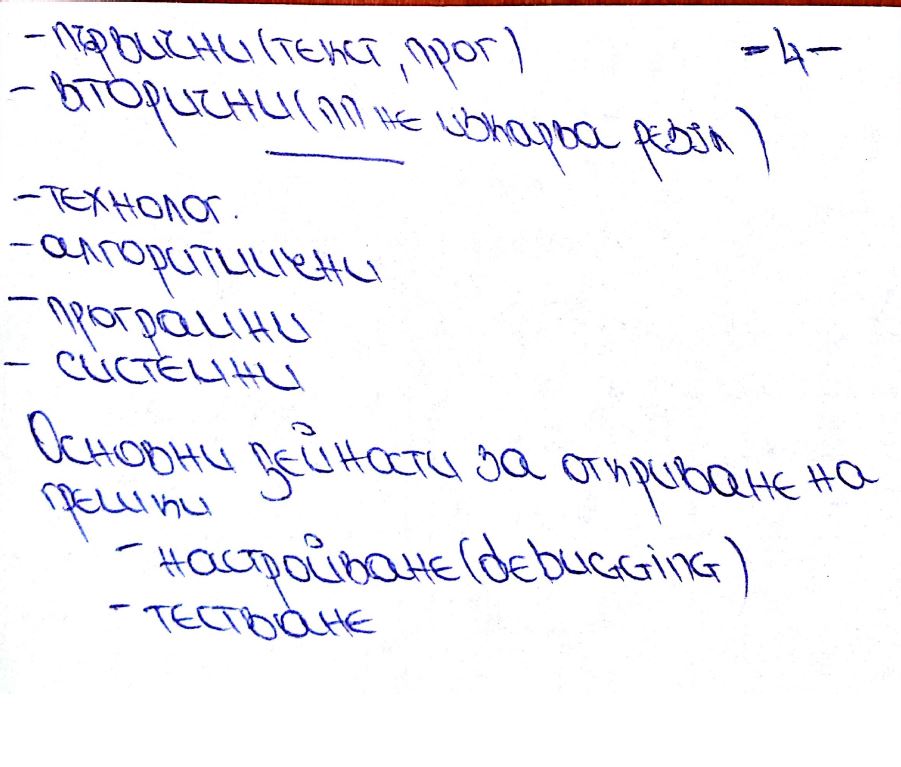 - първични (текст, прог)
-4-
- вторични (ПП не изкарва резул)
- технолог.
- алгоритмични
- програмни
- системни
Основни дейности за откриване на
грешки
- настройване (debugging)
- тестване